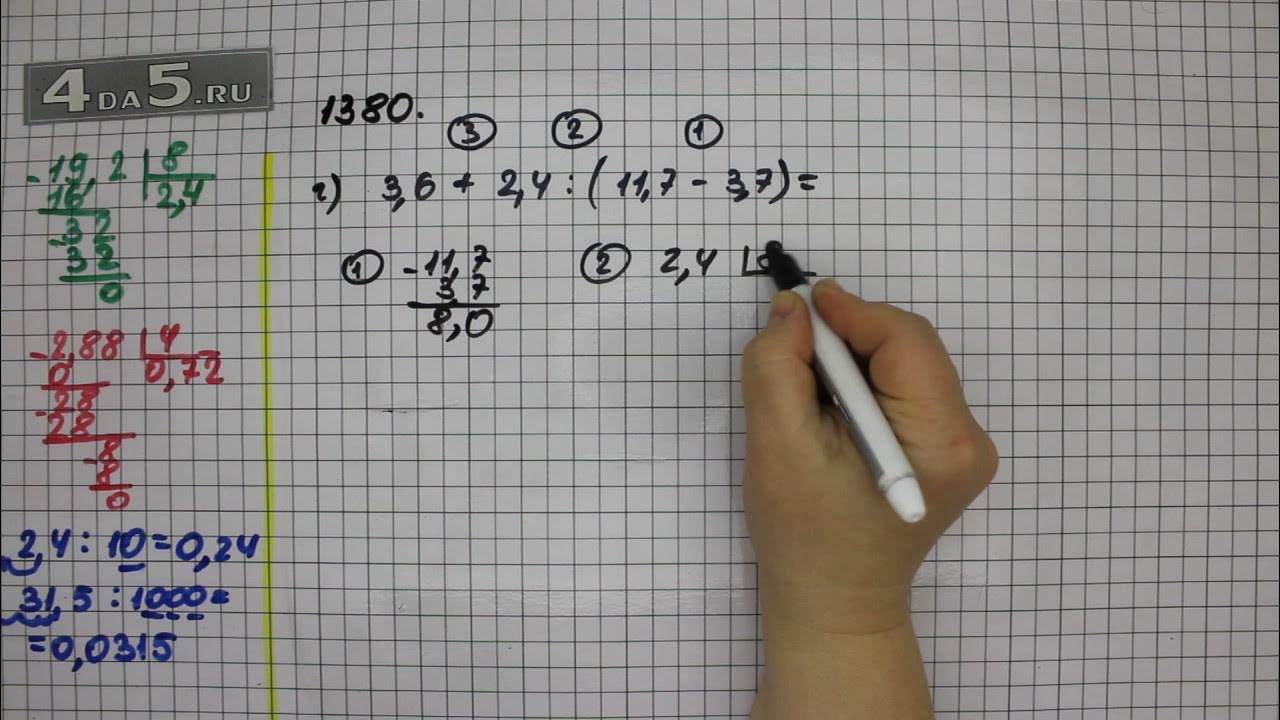 4DA5.RU
-19,2 8
16 2,4
-32
32
0
-2,88 4
0 0,72
-28
28
-8
8
0
2,4 : 10 = 0,24
31,5 : 1000 =
= 0,0315
1380.
3 2 1
г) 3,6 + 2,4 : ( 11,7 - 3,7) =
1 -11,7
3,7
8,0
2 2,4